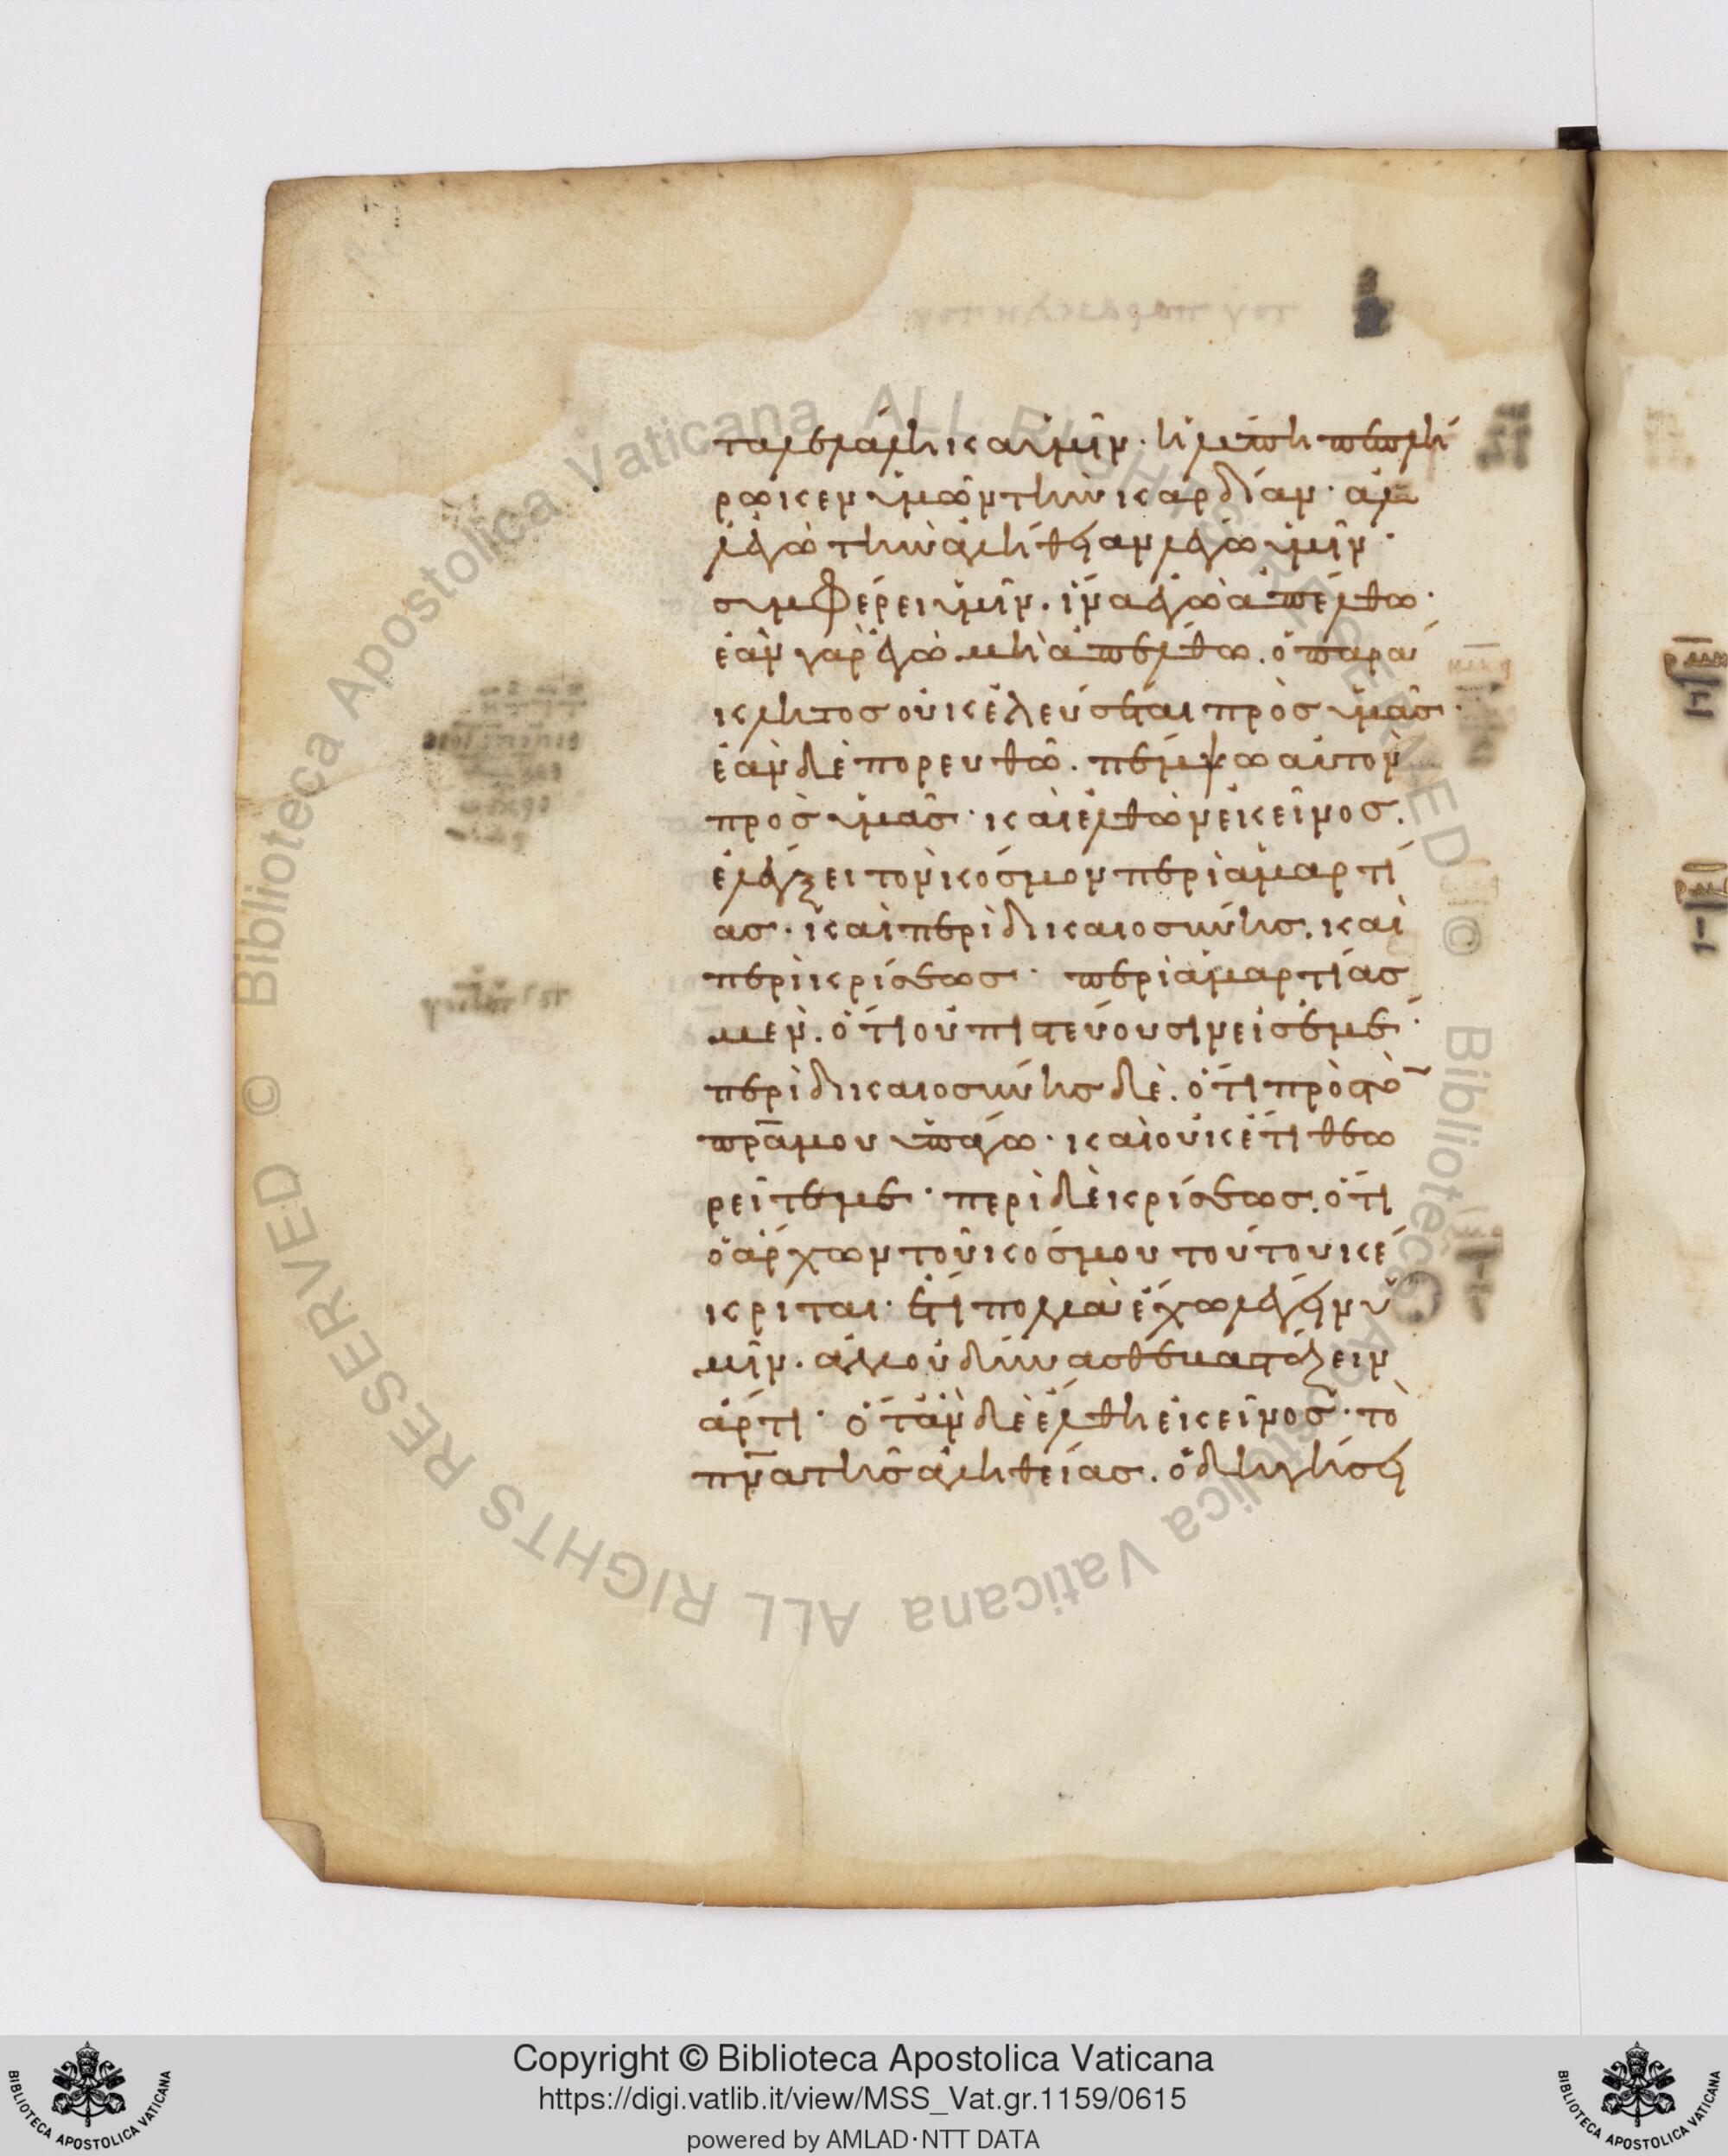 ταλελάληκα ὑμῖν· ἡ λύπη πεπλή
ρωκεν ὑμῶν τὴν καρδίαν· ἀλλ
ἐγὼ τὴν ἀλήθειαν λέγω ὑμῖν·
συμφέρει ὑμῖν. ἵνα ἐγὼ ἀπέλθω·
ἐὰν γὰρ ἐγὼ μὴ ἀπέλθω. ὁ παρά
κλητος οὐκ ἐλεύσεται πρὸς ὑμᾶς·
ἐὰν δὲ πορευθῶ. πέμψω αὐτὸν
πρὸς ὑμᾶς· καὶ ἐλθὼν ἐκεῖνος.
ἐλέγξει τὸν κόσμον περὶ ἁμαρτί
ας· καὶ περὶ δικαιοσύνης. καὶ
περὶ κρίσεως· περὶ ἁμαρτίας
μὲν. ὅτι οὐ πιστεύουσιν εἰς ἐμέ·
περὶ δικαιοσύνης δὲ. ὅτι πρὸς τὸν
πρ̅α μου ὑπάγω· καὶ οὐκ ἔτι θεω
ρεῖτέ με· περὶ δὲ κρίσεως. ὅτι
ὁ ἄρχων τοῦ κόσμου τούτου κέ
κριται· ἔτι πολλὰ ἔχω λέγειν ὑ
μῖν. ἀλλ' οὐ δύνασθε βαστάζειν
ἄρτι· ὅταν δὲ ἔλθη ἐκεῖνος· τὸ
πν̅α τῆς ἀληθείας. ὁδηγήσει
Copyright © Biblioteca Apostolica Vaticana
https://digi.vatlib.it/view/MSS_Vat.gr.1159/0615
powered by AMLAD·NTT DATA
BIBLIOTECA APOSTOLICA VATICANA
BIBLIOTECA APOSTOLICA VATICANA
© Biblioteca Apostolica Vaticana ALL RIGHTS RESERVED
© Biblioteca Apostolica Vaticana ALL RIGHTS RESERVED